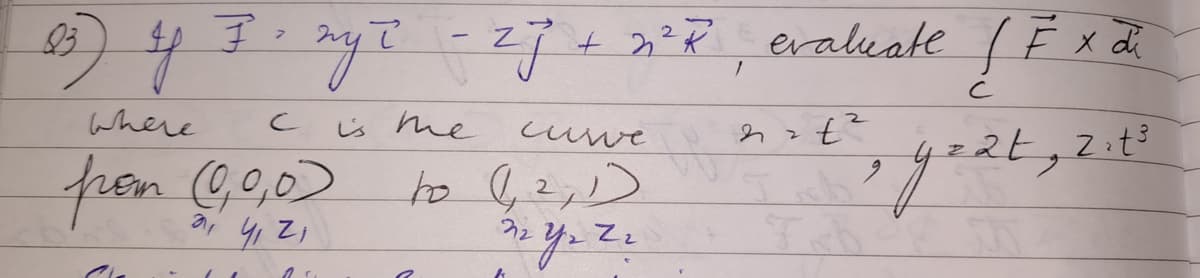 Q3) If F⃗ = xy i⃗ - z j⃗ + x² k⃗, evaluate ∫_C F⃗ × dr⃗
where C is the curve x = t², y = 2t, z = t³
from (0,0,0) to (1,2,1)
x₁ y₁ z₁ x₂ y₂ z₂